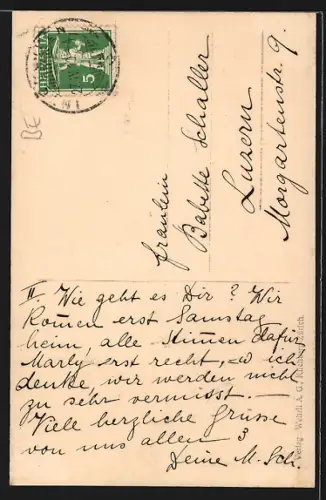 HELVETIA
5
BE
Fräulein
Babette Schaller
Luzern
Morgartenstr. 9.
II. Wie geht es Dir? Wir
komen erst Samstag
heim, alle stimen dafür,
Marly erst recht, u. ich
denke, wir werden nicht
zu sehr vermisst. —
Viele herzliche Grüsse
von uns allen 3
Deine M. Sch.
Verlag Wehrli A. G., Kilchberg-Zürich